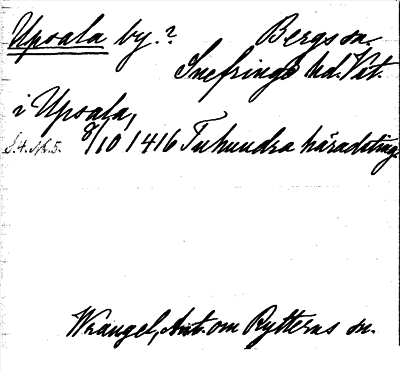 Upsala by.? Bergs sn.
Snefringe hd. Vst.
i Upsala,
S.4. Nr. 5. 8/10 1416 Tuhundra häradsting.
Wrangel, Ant. om Rytterns sn.